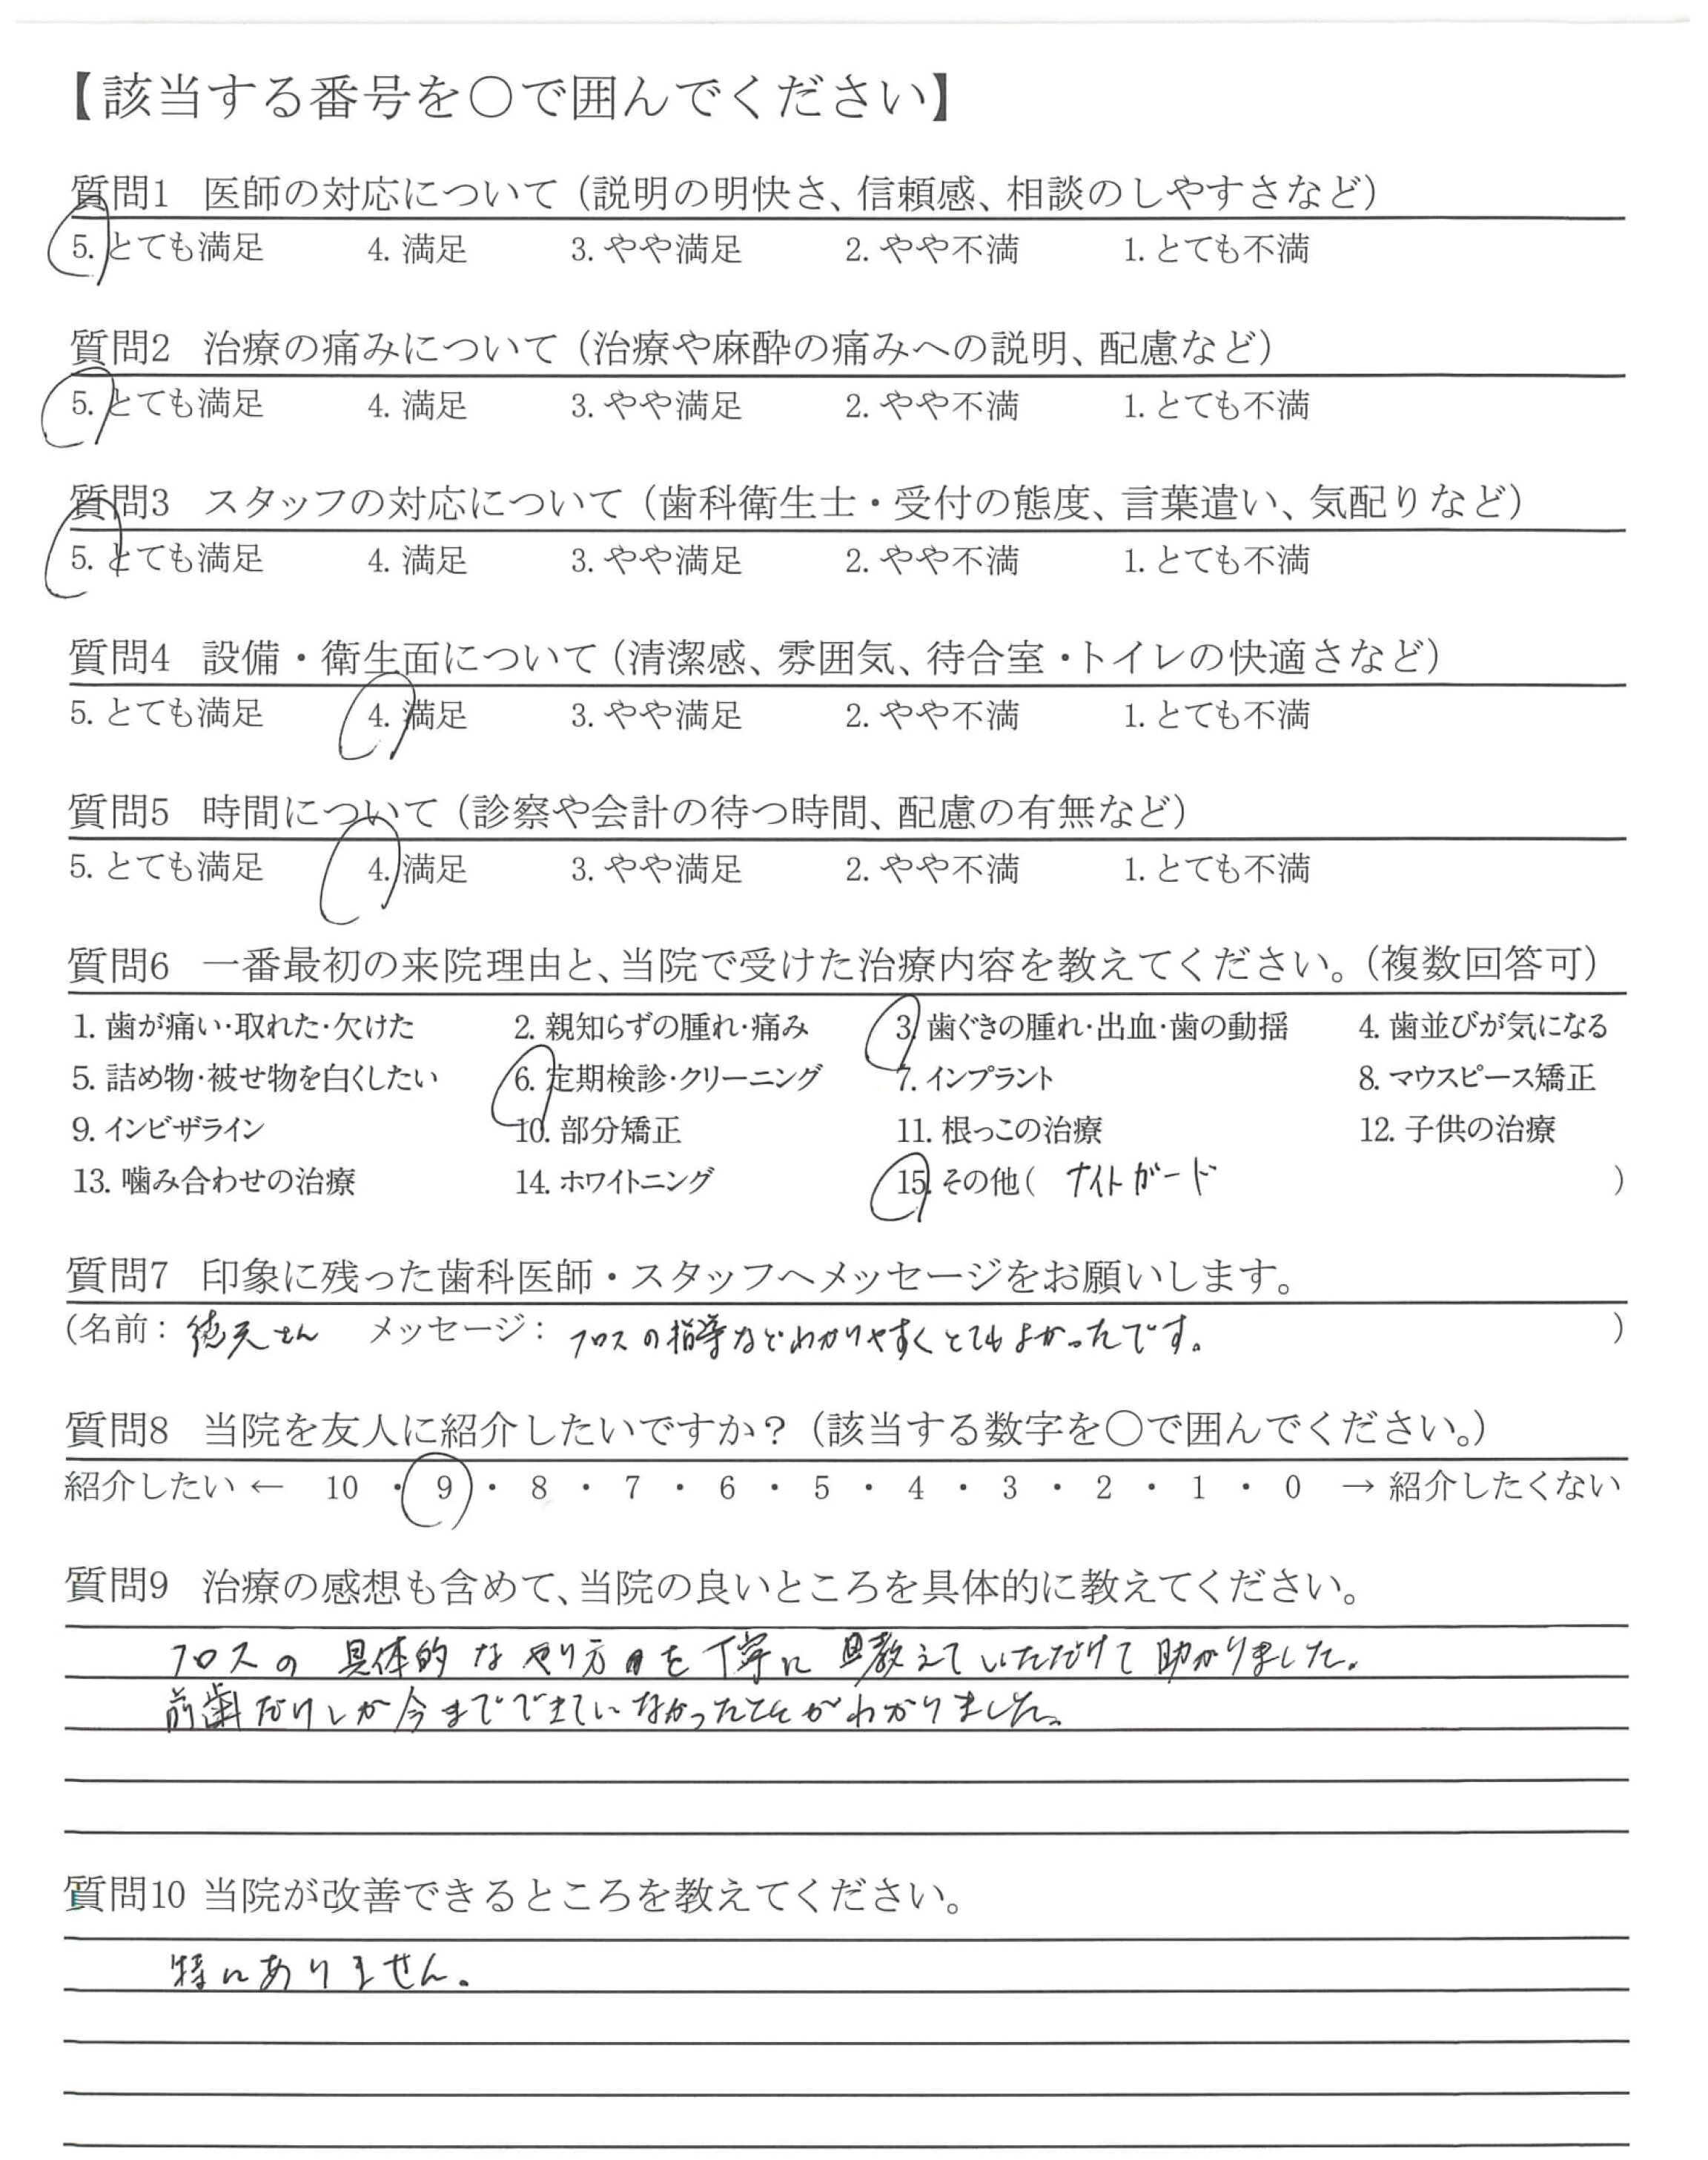 【該当する番号を○で囲んでください】
質問1 医師の対応について（説明の明快さ、信頼感、相談のしやすさなど）
5. とても満足 4. 満足 3. やや満足 2. やや不満 1. とても不満
質問2 治療の痛みについて（治療や麻酔の痛みへの説明、配慮など）
5. とても満足 4. 満足 3. やや満足 2. やや不満 1. とても不満
質問3 スタッフの対応について（歯科衛生士・受付の態度、言葉遣い、気配りなど）
5. とても満足 4. 満足 3. やや満足 2. やや不満 1. とても不満
質問4 設備・衛生面について（清潔感、雰囲気、待合室・トイレの快適さなど）
5. とても満足 4. 満足 3. やや満足 2. やや不満 1. とても不満
質問5 時間について（診察や会計の待つ時間、配慮の有無など）
5. とても満足 4. 満足 3. やや満足 2. やや不満 1. とても不満
質問6 一番最初の来院理由と、当院で受けた治療内容を教えてください。（複数回答可）
1. 歯が痛い・取れた・欠けた 2. 親知らずの腫れ・痛み 3. 歯ぐきの腫れ・出血・歯の動揺 4. 歯並びが気になる
5. 詰め物・被せ物を白くしたい 6. 定期検診・クリーニング 7. インプラント 8. マウスピース矯正
9. インビザライン 10. 部分矯正 11. 根っこの治療 12. 子供の治療
13. 噛み合わせの治療 14. ホワイトニング 15. その他（ ナイトガード ）
質問7 印象に残った歯科医師・スタッフへメッセージをお願いします。
（名前： さん メッセージ： フロスの指導などわかりやすくとてもよかったです。 ）
質問8 当院を友人に紹介したいですか？（該当する数字を○で囲んでください。）
紹介したい ← 10 ・ 9 ・ 8 ・ 7 ・ 6 ・ 5 ・ 4 ・ 3 ・ 2 ・ 1 ・ 0 → 紹介したくない
質問9 治療の感想も含めて、当院の良いところを具体的に教えてください。
フロスの 具体的 な やり方を 丁寧に 教えていただけて 助かりました。
前歯だけしか今までできていなかったことがわかりました。
質問10 当院が改善できるところを教えてください。
特にありません。